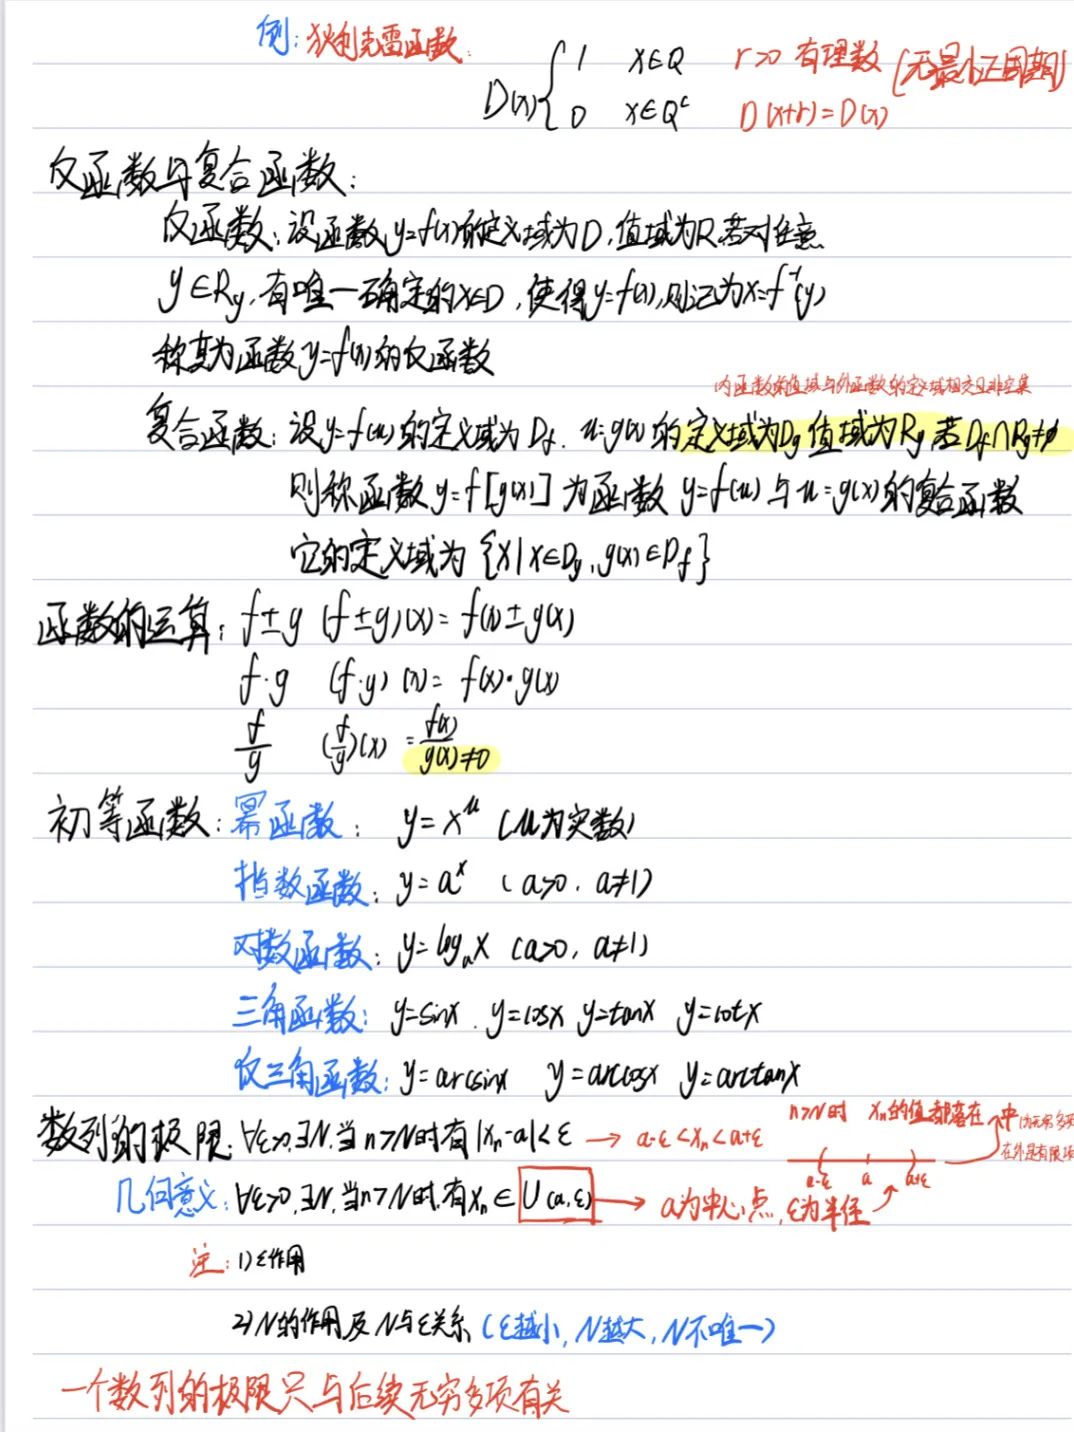 例:狄利克雷函数:
D(x){ 1 x∈Q r>0 有理数 (无最小正周期)
0 x∈Qᶜ D(x+r)=D(x)
反函数与复合函数:
反函数:设函数y=f(x)的定义域为D,值域为R,若对任意
y∈Ry,有唯一确定的x∈D,使得y=f(x),则记为x=f⁻¹(y)
称其为函数y=f(x)的反函数
内函数的值域与外函数的定义域相交且非空集
复合函数:设y=f(u)的定义域为Df. u=g(x)的定义域为Dg值域为Rg,若Df∩Rg≠φ
则称函数y=f[g(x)]为函数y=f(u)与u=g(x)的复合函数
它的定义域为{x|x∈Dg,g(x)∈Df}
函数的运算: f±g (f±g)(x)=f(x)±g(x)
f·g (f·g)(x)=f(x)·g(x)
f/g (f/g)(x)=f(x)/g(x)≠0
初等函数:幂函数: y=x^μ (μ为实数)
指数函数: y=aˣ (a>0, a≠1)
对数函数: y=logₐx (a>0, a≠1)
三角函数: y=sinx. y=cosx y=tanx y=cotx
反三角函数: y=arcsinx y=arccosx y=arctanx
n>N时 xn的值都落在 中
内无穷多项
在外是有限项
数列的极限:∀ε>0,∃N,当n>N时有|xn-a|<ε → a-ε<xn<a+ε
a-ε a a+ε
几何意义:∀ε>0,∃N,当n>N时,有xn∈U(a,ε) → a为中心点,ε为半径
注:1)ε作用
2)N的作用及N与ε关系 (ε越小,N越大,N不唯一)
一个数列的极限只与后续无穷多项有关